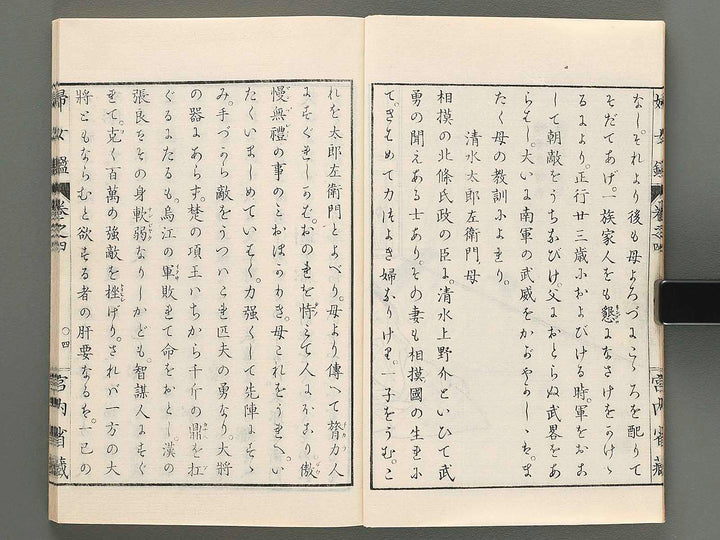 なし。それより後も母よろづにこゝろを配りて
そだてあげ。一族家人をも懇になさけをかけゝ
るにより。正行廿三歳におよびける時。軍をおこ
して朝敵をうちなびけ。父におとらぬ武畧をあ
らはし。大いに南軍の武威をかゞやかしゝも。ま
たく母の教訓によれり。
清水太郎左衛門母
相摸の北條氏政の臣に。清水上野介といひて武
勇の聞えある士あり。その妻も相摸國の生まに
て。きはめて力つよき婦なりけり。一子をうむ。こ
れを太郎左衛門とよべり。母より傳へて膂力人
にすぐれしかば。おのれを恃みて人におごり。傲
慢無禮の事のみおほかりき。母これをうれへ。い
たくいましめていはく。力強くして先陣にすゝ
み。手づから敵をうつハこれ匹夫の勇なり。大將
の器にあらず。楚の項王ハちから千斤の鼎を扛
ぐるにたるも。烏江の軍敗れて命をおとし。漢の
張良はその身軟弱なりしかども。智謀人にすぐ
れて。克く百萬の強敵を挫げり。されバ一方の大
將ともならむと欲する者の肝要なるは。一己の
婦女鑑 卷之四 〇四 宮内省藏